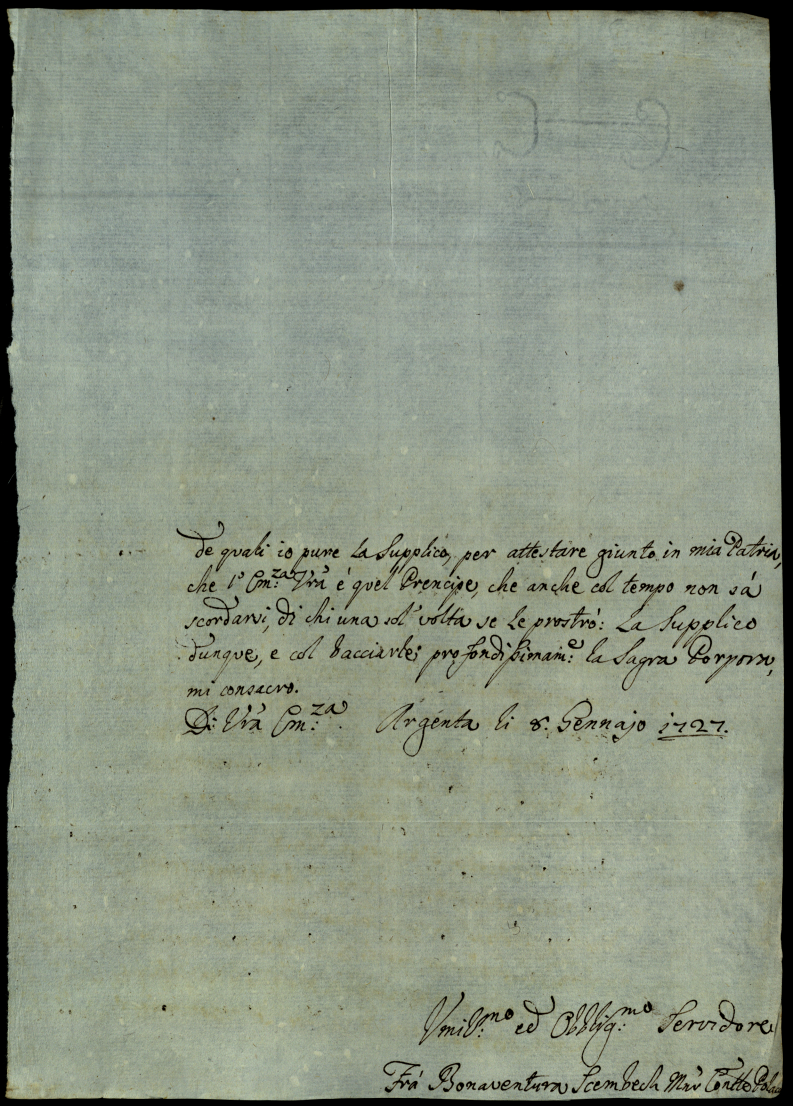 de quali io pure la Supplico, per attestare giunto in mia Patria,
che l' Em:za Vrã é quel Prencipe, che anche col tempo non sá
scordarsi, di chi una sol' volta se le prostró: la Supplico
dunque, e col bacciarle profondissimam:e la Sagra Porpora,
mi consacro.
Di Vrã Em:za. Argenta li 8. Gennajo 1727.
Umil:mo ed Obblig:mo Servidore
Frá Bonaventura Scembech